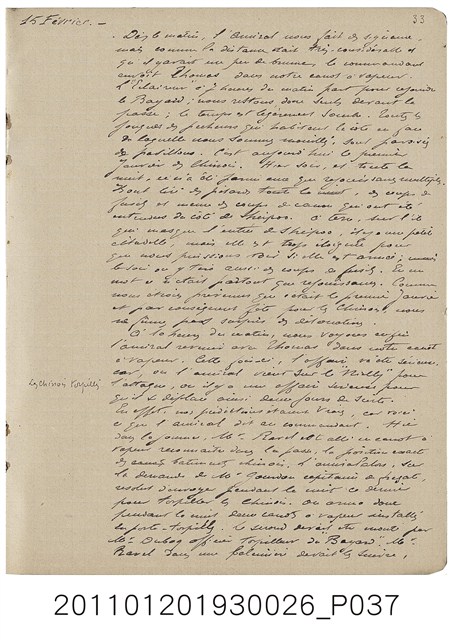 33
15 Février. –
Dès le matin, l'amiral nous fait des signaux,
mais comme la distance était très considérable et
qu'il y avait un peu de brume, le commandant
envoit Thomas dans notre canot à vapeur.
L'Eclaireur à 7 heures du matin part pour rejoindre
le Bayard; nous restons donc seuls devant la
passe; le temps est légèrement sombre. Toutes les
jonques des pêcheurs qui habitent la côte en face
de laquelle nous sommes mouillés, sont pavoisées
de pavillons. C'est aujourd'hui le premier
janvier des Chinois. Hier soir et toute la
nuit, ce n'a été parmi eux que réjouissances multiples.
Ils ont tiré des pétards toute la nuit, des coups de
fusils et même des coups de canon qui ont été
entendus du côté de Sheipoo. A terre, sur l'île
qui masque l'entrée de Sheipoo, il y a une petite
citadelle, mais elle est trop éloignée pour
que nous puissions voir si elle est armée; mais
le soir on y tire aussi des coups de fusils. En un
mot ce n'était partout que réjouissances. Comme
nous étions prévenus que c'était le premier janvier
et par conséquent fête pour les Chinois, nous
ne fûmes pas surpris des détonations.
A 10 heures du matin, nous voyons enfin
l'amiral revenir avec Thomas dans notre canot
à vapeur. Cette fois-ci, l'affaire va être sérieuse
car, ou l'amiral vient sur le Nielly pour
l'attaque, ou il y a une affaire sérieuse pour
qu'il se déplace ainsi deux jours de suite.
Les Chinois torpillés
En effet, nos prédictions étaient vraies, car voici
ce que l'amiral dit au commandant. Hier
dans la journée, Mr. Ravel est allé en canot à
vapeur reconnaître dans la passe, la position exacte
des bâtiments chinois. L'amiral alors, sur
la demande de Mr. Gourdon capitaine de frégate,
résolut d'envoyer pendant la nuit ce dernier
pour torpiller les Chinois. On arma donc
pendant la nuit deux canots à vapeur installés
en porte-torpilles. Le second devait être monté par
Mr. Duboc officier torpilleur du Bayard. Mr.
Ravel dans une baleinière devait les suivre,
201101201930026_P037